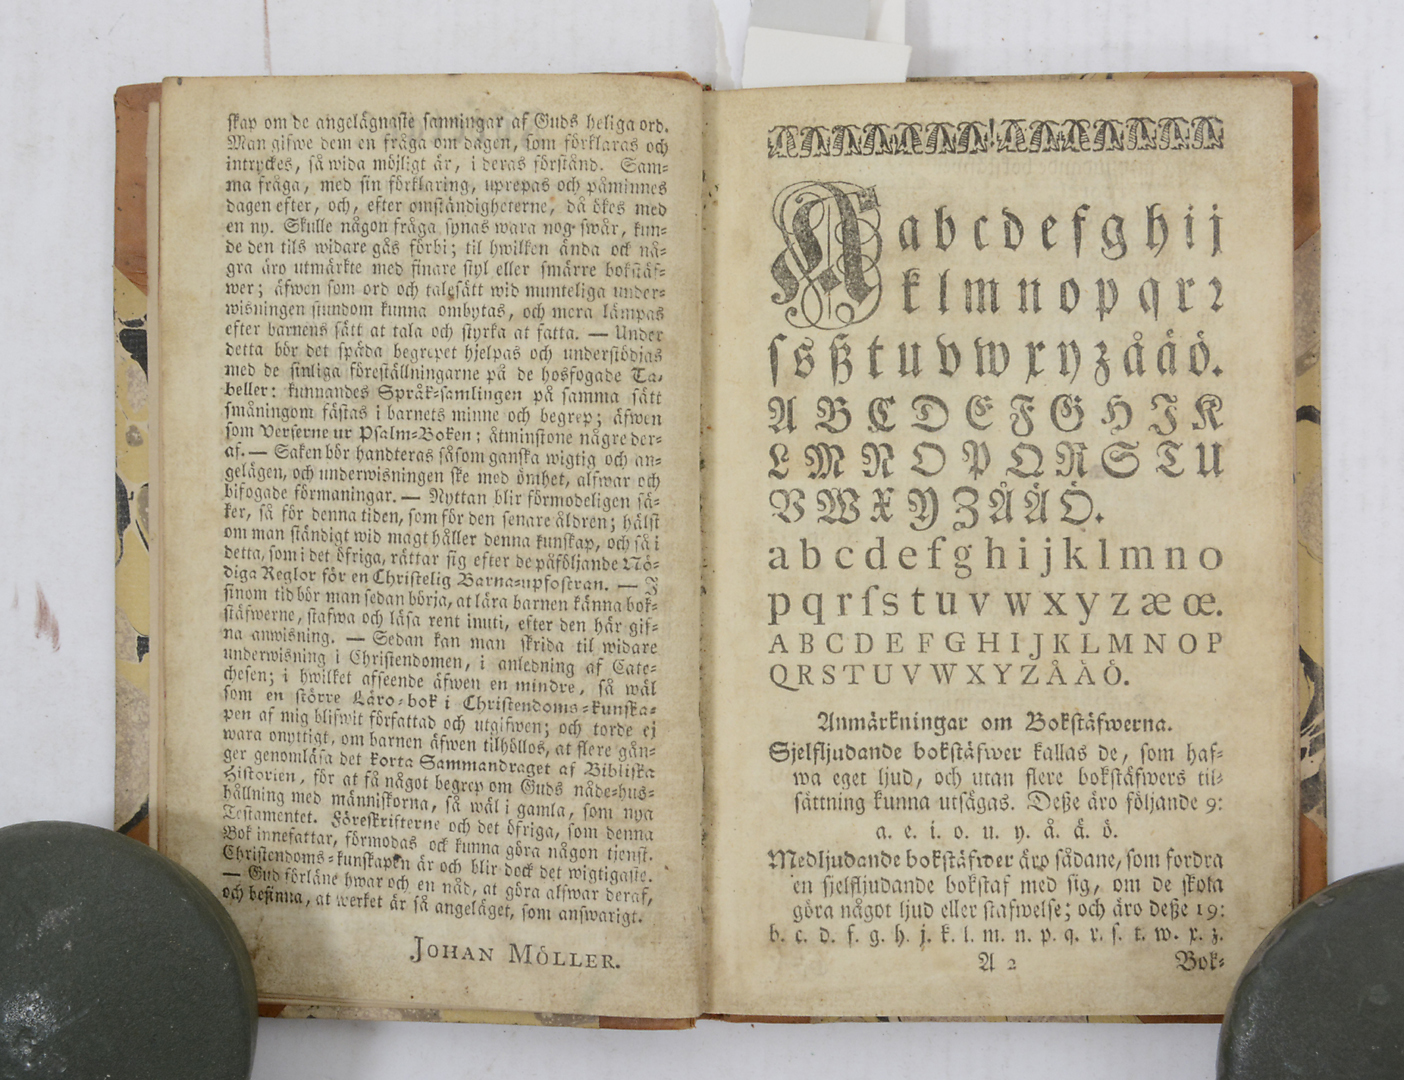 ſkap om de angelägnaſte ſanningar af Guds heliga ord.
Man gifwe dem en fråga om dagen, ſom förklaras och
intryckes, ſå wida möjligt är, i deras förſtånd. Sam⸗
ma fråga, med ſin förklaring, uprepas och påminnes
dagen efter, och, efter omſtändigheterne, då ökes med
en ny. Skulle någon fråga ſynas wara nog ſwår, kun⸗
de den tils widare gås förbi; til hwilken ända ock nå⸗
gra äro utmärkte med finare ſtyl eller ſmärre bokſtäf⸗
wer; äfwen ſom ord och taleſätt wid munteliga under⸗
wisningen ſtundom kunna ombytas, och mera lämpas
efter barnens ſätt at tala och ſtyrka at fatta. — Under
detta bör det ſpäda begrepet hjelpas och underſtödjas
med de ſinliga föreſtällningarne på de hosfogade Ta⸗
beller: kunnandes Språk⸗ſamlingen på ſamma ſätt
ſmåningom fäſtas i barnets minne och begrep; äfwen
ſom Verſerne ur Pſalm⸗Boken; åtminſtone någre der⸗
af. — Saken bör handteras ſåſom ganſka wigtig och an⸗
gelägen, och underwisningen ſke med ömhet, alfwar och
bifogade förmaningar. — Nyttan blir förmodeligen ſä⸗
ker, ſå för denna tiden, ſom för den ſenare åldren; hälſt
om man ſtändigt wid magt håller denna kunſkap, och ſå i
detta, ſom i det öfriga, rättar ſig efter de påföljande Nö⸗
diga Reglor för en Chriſtelig Barna⸗upfoſtran. — J
ſinom tid bör man ſedan börja, at lära barnen känna bok⸗
ſtäfwerne, ſtafwa och läſa rent inuti, efter den här gif⸗
na anwisning. — Sedan kan man ſkrida til widare
underwisning i Chriſtendomen, i anledning af Cate⸗
cheſen; i hwilket afſeende äfwen en mindre, ſå wäl
ſom en större Läro⸗bok i Chriſtendoms⸗kunſka⸗
pen af mig blifwit författad och utgifwen; och torde ej
wara onyttigt, om barnen äfwen tilhöllos, at flere gån⸗
ger genomläſa det korta Sammandraget af Bibliſka
Hiſtorien, för at få något begrep om Guds nåde⸗hus⸗
hållning med människorna, ſå wäl i gamla, ſom nya
Teſtamentet. Föreſkrifterne och det öfriga, ſom denna
Bok innefattar, förmodas ock kunna göra någon tjenſt.
Chriſtendoms⸗kunſkapen är och blir dock det wigtigaſte.
— Gud förläne hwar och en nåd, at göra alfwar deraf,
och beſinna, at werket är ſå angeläget, ſom anſwarigt.
JOHAN MÖLLER.
A a b c d e f g h i j
k l m n o p q r ꝛ
ſ s ß t u v w x y z å ä ö.
A B C D E F G H J K
L M N O P Q R S T U
V W X Y Z Å Ä Ö.
a b c d e f g h i j k l m n o
p q r ſ s t u v w x y z æ œ.
A B C D E F G H I J K L M N O P
Q R S T U V W X Y Z Å Ä Ö.
Anmärkningar om Bokſtäfwerna.
Sjelfljudande bokſtäfwer kallas de, ſom haf⸗
wa eget ljud, och utan flere bokſtäfwers til⸗
ſättning kunna utſägas. Deße äro följande 9:
a. e. i. o. u. y. å. ä. ö.
Medljudande bokſtäfwer äro ſådane, ſom fordra
en ſjelfljudande bokſtaf med ſig, om de ſkola
göra något ljud eller ſtafwelſe; och äro deße 19:
b. c. d. f. g. h. j. k. l. m. n. p. q. r. ſ. t. w. x. z.
A 2 Bok⸗